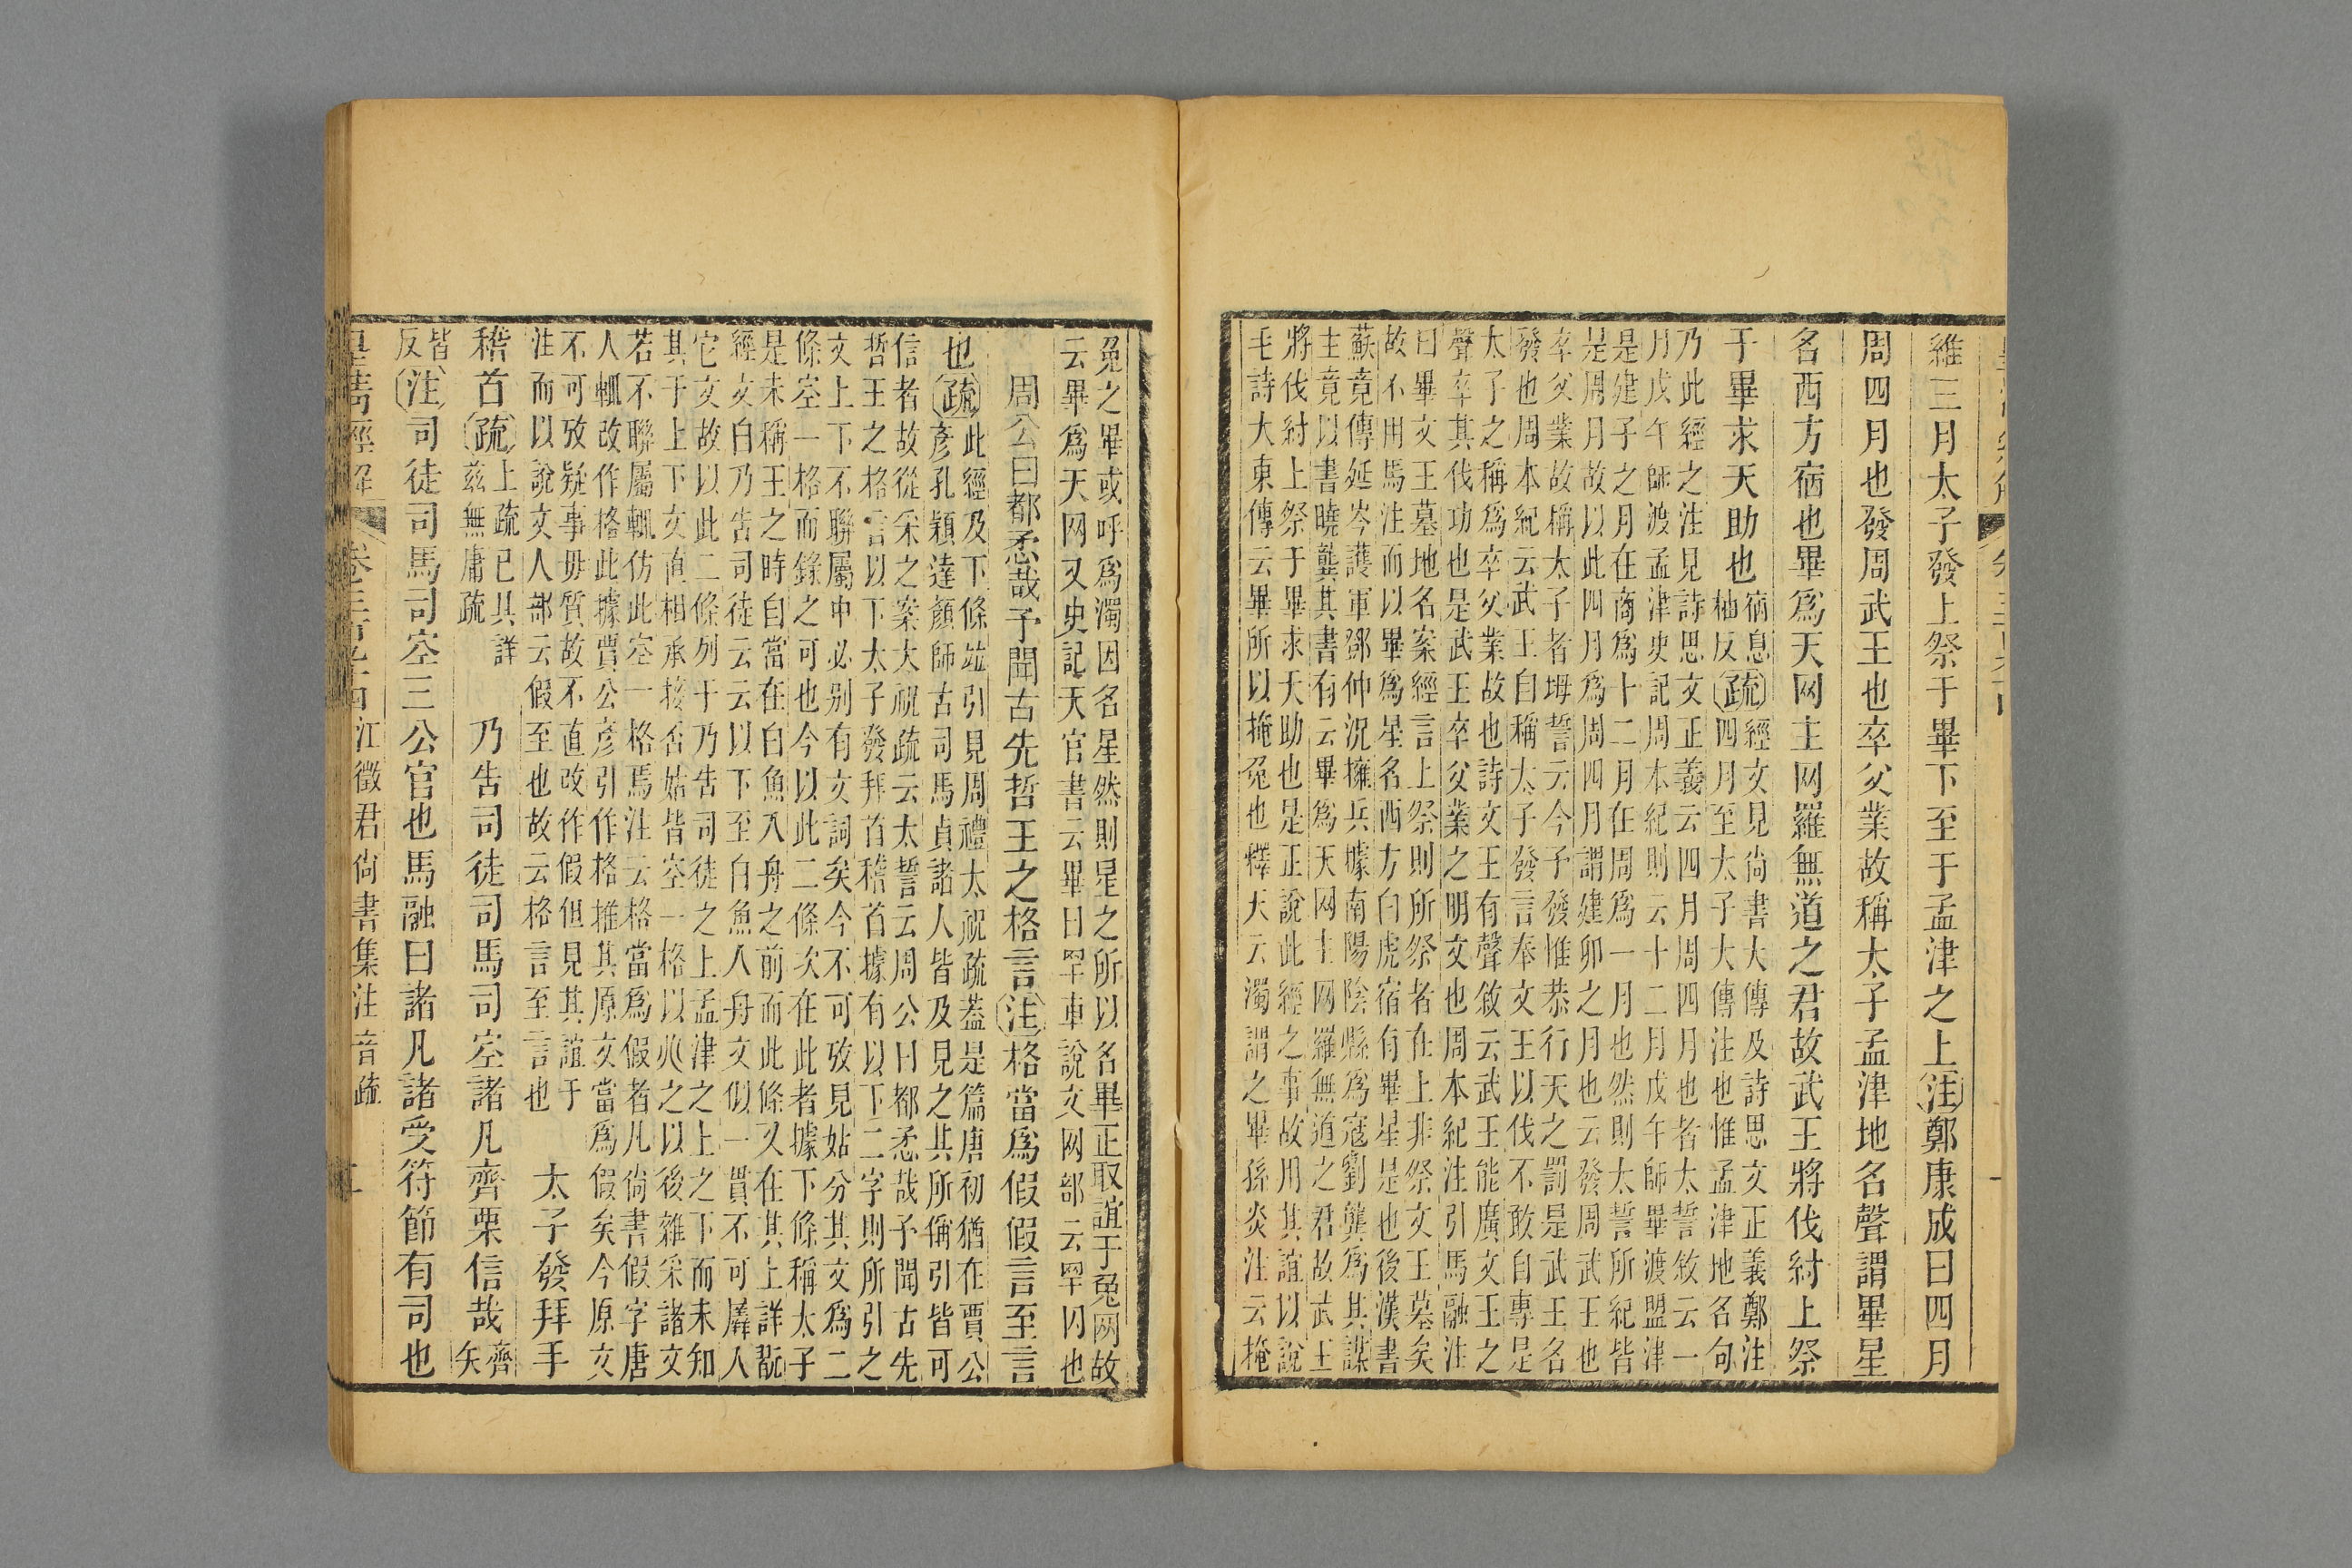 維三月太子發上祭于畢下至于孟津之上注鄭康成曰四月
周四月也發周武王也卒父業故稱太子孟津地名聲謂畢星
名西方宿也畢爲天网主网羅無道之君故武王將伐紂上祭
于畢求天助也
宿息
柚反
疏
經文見尙書大傳及詩思文正義鄭注
四月至太子大傳注也惟孟津地名句
乃此經之注見詩思文正義云四月周四月也者太誓敘云一
月戊午師渡孟津史記周本紀則云十二月戊午師畢渡盟津
是建子之月在商爲十二月在周爲一月也然則太誓所紀皆
是周月故以此四月爲周四月謂建卯之月也云發周武王也
卒父業故稱太子者坶誓云今予發惟恭行天之罰是武王名
發也周本紀云武王自稱太子發言奉文王以伐不敢自專是
太子之稱爲卒父業故也詩文王有聲敘云武王能廣文王之
聲卒其伐功也是武王卒父業之明文也周本紀注引馬融注
曰畢文王墓地名案經言上祭則所祭者在上非祭文王墓矣
故不用馬注而以畢爲星名西方白虎宿有畢星是也後漢書
蘇竟傳延岑護軍鄧仲況擁兵據南陽陰縣爲寇劉龔爲其謀
主竟以書曉龔其書有云畢爲天网主网羅無道之君故武王
將伐紂上祭于畢求天助也是正說此經之事故用其誼以說
毛詩大東傳云畢所以掩兔也釋天云濁謂之畢孫炎注云掩
兔之畢或呼爲濁因名星然則星之所以名畢正取誼于兔网故
云畢爲天网又史記天官書云畢曰罕車說文网部云罕网也
周公曰都㤅哉予聞古先哲王之格言注格當爲假假言至言
也疏
此經及下條竝引見周禮太祝疏蓋是篇唐初猶在賈公
彥孔穎達顏師古司馬貞諸人皆及見之其所偁引皆可
信者故從采之案大祝疏云太誓云周公曰都㤅哉予聞古先
哲王之格言以下太子發拜首稽首據有以下二字則所引之
文上下不聯屬中必別有文詞矣今不可攷見姑分其文爲二
條空一格而錄之可也今以此二條次在此者據下條稱太子
是未稱王之時自當在白魚入舟之前而此條又在其上詳翫
經文白乃告司徒云云以下至白魚入舟文似一貫不可羼人
它文故以此二條列于乃告司徒之上孟津之上之下而未知
其于上下文直相承接否姑皆空一格以㸚之以後雜采諸文
若不聯屬輒仿此空一格馬注云格當爲假者凡尙書假字唐
人輒改作格此據賈公彥引作格推其原文當爲假矣今原文
不可攷疑事毋質故不直改作假但見其誼于
注而以說文人部云假至也故云格言至言也
太子發拜手
稽首疏
上疏已具詳
茲無庸疏
乃告司徒司馬司空諸凡齊栗信哉
齊
矣
皆
反
注司徒司馬司空三公官也馬融曰諸凡諸受符節有司也
皇淸經解
卷三百九十四
江徵君尙書集注音疏